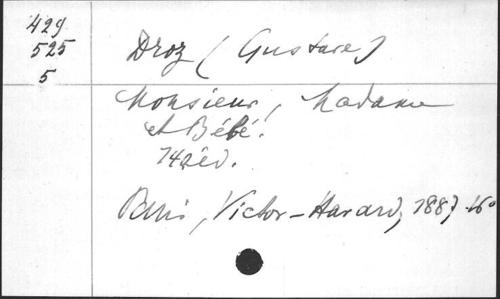 429
525
5
Droz (Gustave)
Monsieur, Madame
et Bébé!
142 éd.
Paris, Victor-Havard, 1887, 16°